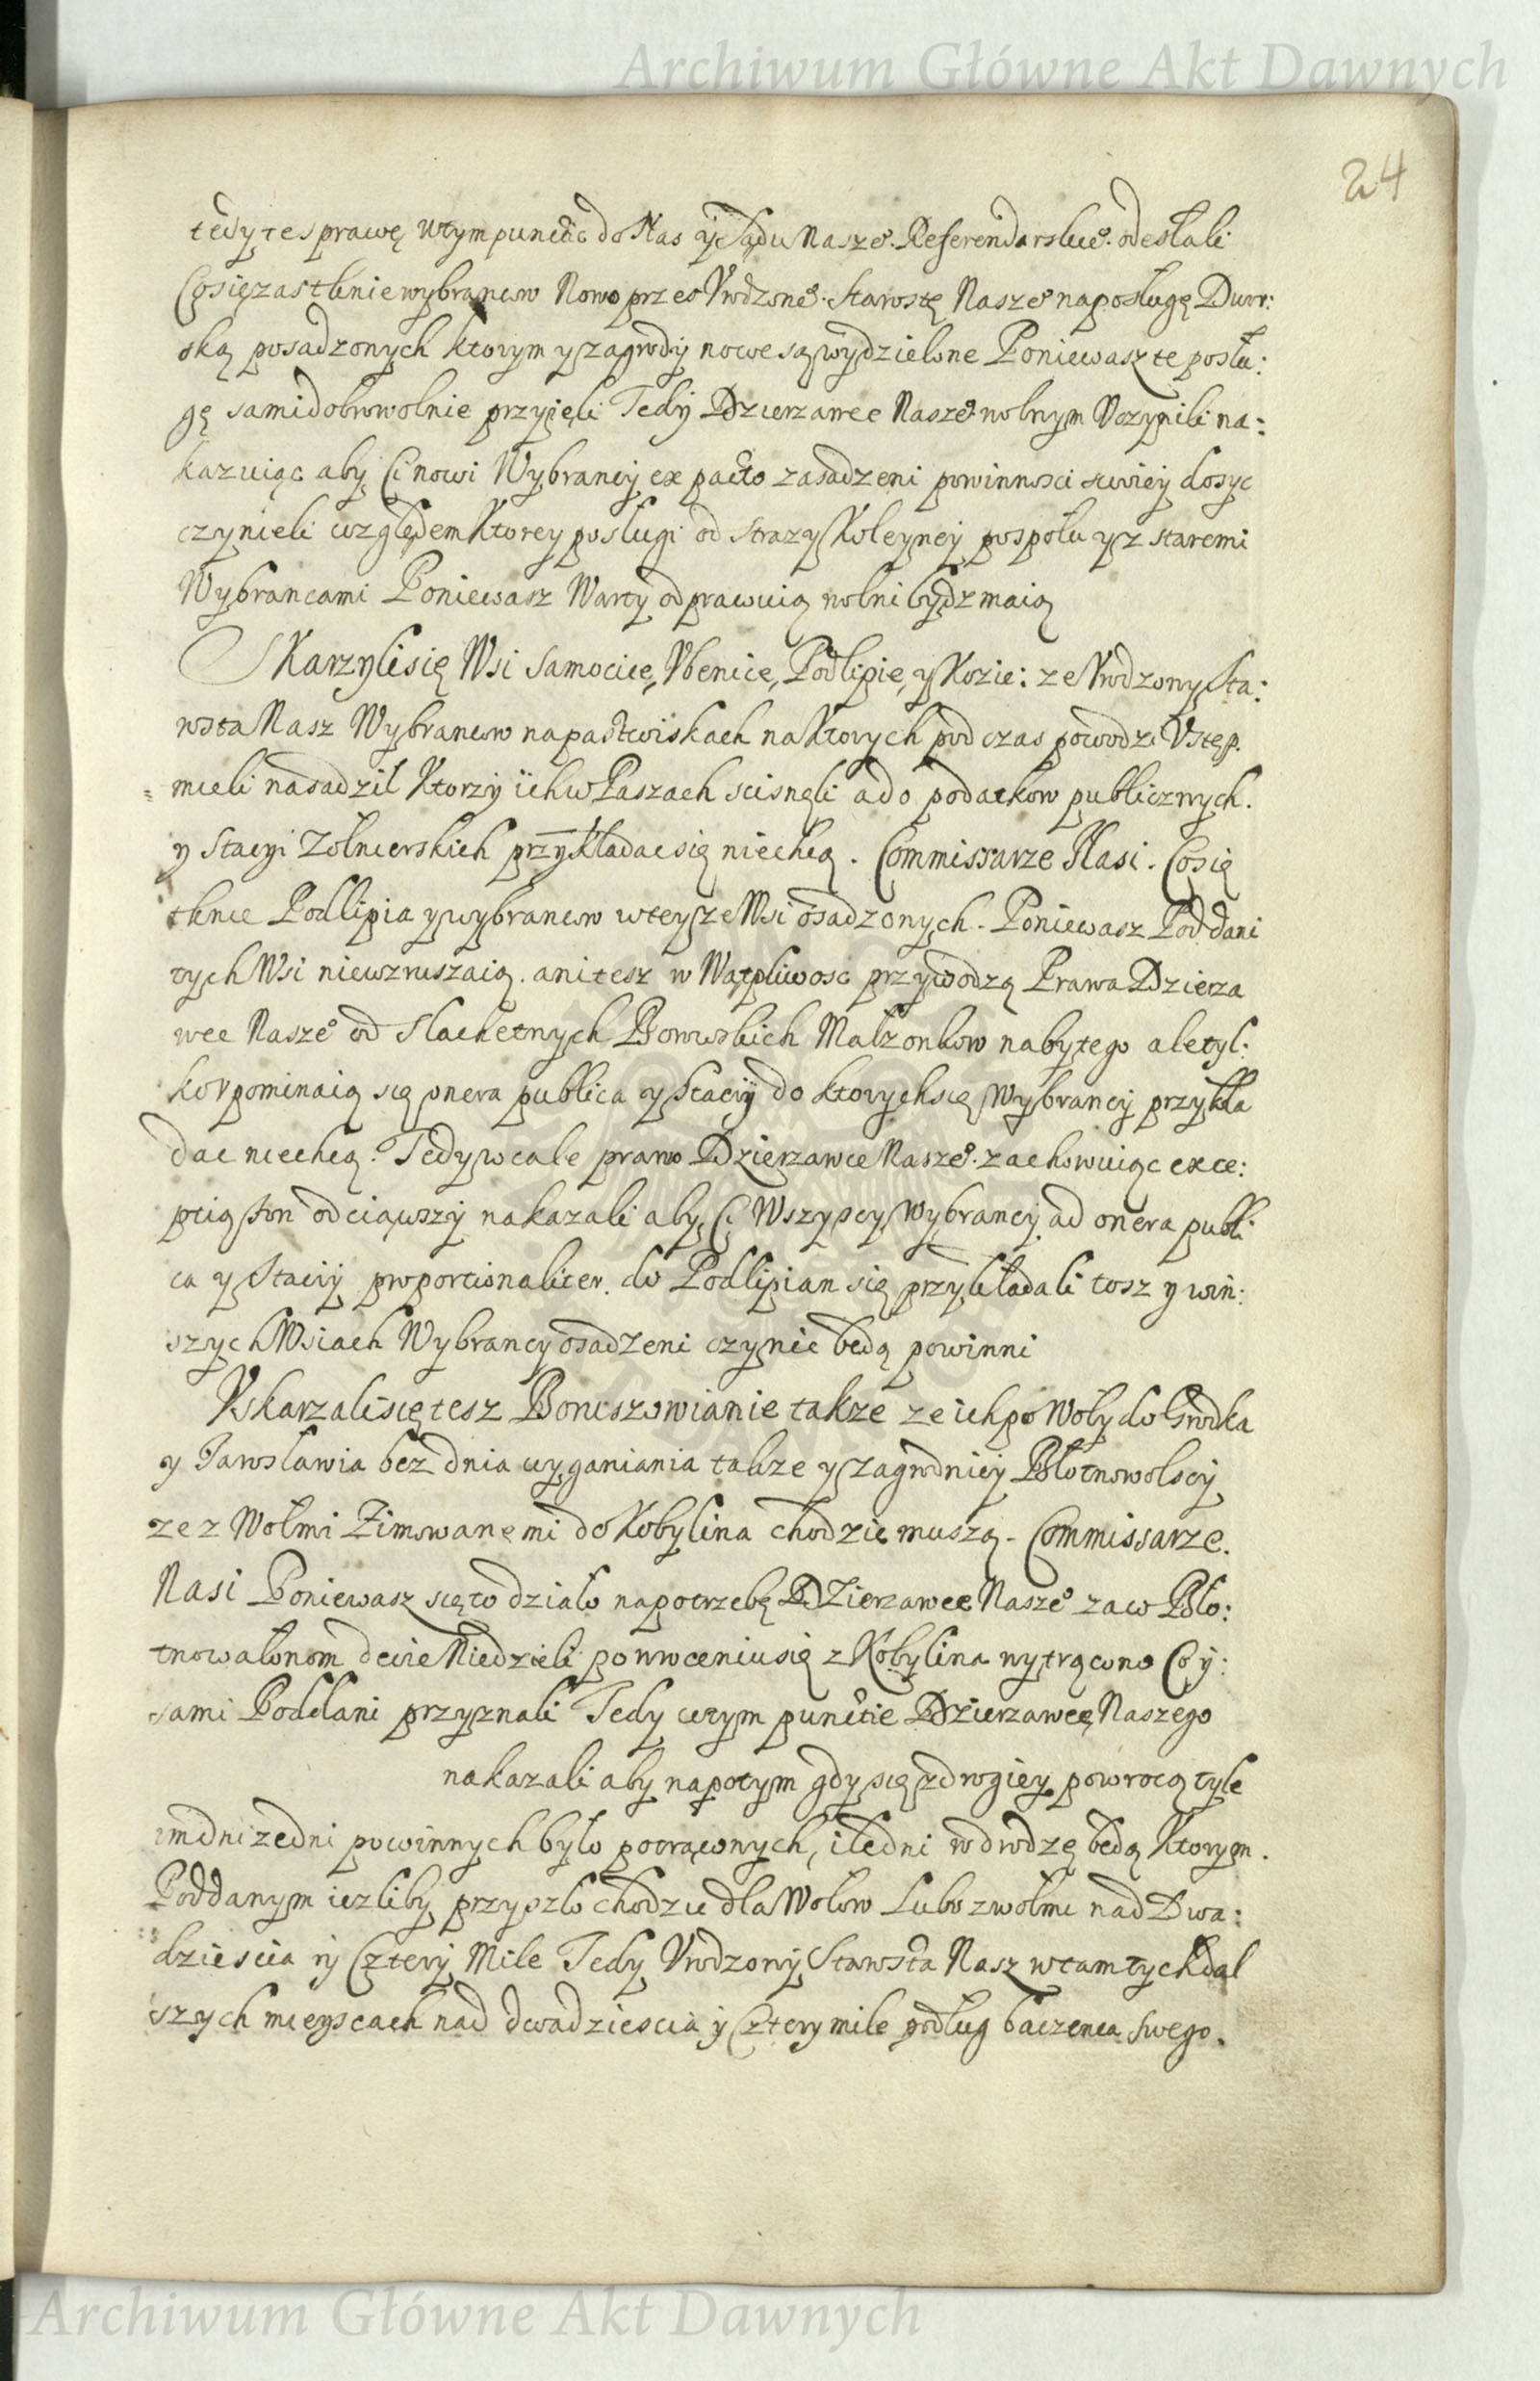 Archiwum Główne Akt Dawnych
24
tedy te sprawę wtym punctic do Nas y Sądu Naszeº. Referendarskieº. odesłali
Cosięzastknie wybrancow Nowo przes Vrodzoneº. Starostę Naszeº na posługę Dwor:
ską posadzonych ktorym y zagrody nowe są wydzielone Poniewasz te posłu:
gę sami dobrowolnie przyięli Tedy Dzierzawce Naszeº wolnym Vczynili na:
kazuiąc aby Ci nowi Wybrancy ex pacto zasadzeni powinnosci swoiey dosyc
czynieli względem Ktorey posługi od Strazy Koleyney pospołu y z staremi
Wybrancami Poniewasz Warty odprawuią wolni bydz maią
Skarzyli się Wsi Samocice, Vbenice, Podlipie, y Kozie: ze Vrodzony Sta:
rosta Nasz Wybrancow na pastwiskach na Ktorych pod czas powodzi Vstęp.
mieli nasadzil Ktorzy ich w Paszach scisnęli a do podatkow publicznych.
y Stacyi Zołnierskich przykładac się niechcą. Commissarze Nasi. Cosię
tknie Podlipia y wybrancow wteysze Wsi osadzonych. Poniewasz Poddani
tych Wsi niewzruszaią. ani tesz w Wątpliwosc przywodzą Prawa Dzierza
wce Naszeº od Slachetnych Borowskich Malzonkow nabytego ale tyl:
ko Vpominaią się onera publica y Stacyi do ktorych się Wybrancy przykła
dac niechcą. Tedy wcale prawo Dzierzawce Naszeº. zachowuiąc exce:
ptią Stron odciąwszy nakazali aby Ci Wszyscy Wybrancy ad onera publi:
ca y Staciy proportionaliter. do Podlipian się przykładali tosz y win:
szych Wsiach Wybrancy osadzeni czynic będą powinni
Vskarzali się tesz Boniszowianie takze ze ich po Woły do Grodka
y Jarosławia bez dnia wyganiania takze y zagrodnicy Błotnowolscy
ze z Wołmi Zimowanemi do Kobylina chodzic muszą. Commissarze.
Nasi Poniewasz się to działo na potrzebę Dzierzawce Naszeº za co Bło:
tnowolonom dwie Niedzieli po wroceniu się z Kobylina wytrącono Co y:
sami Poddani przyznali Tedy wtym punctie Dzierzawcę Naszego
nakazali aby napotym gdy się z drogiey powrocą tyle
im dni zedni powinnych było potrąconych, iledni w drodzę będą Ktorym.
Poddanym iezliby przyszło chodzic dla Wołow Lubo zwołmi nad Dwa:
dziescia y Cztery Mile Tedy Vrodzony Starosta Nasz wtamtych dal
szych mieyscach nad dwadziescia y Cztery mile podług baczenia swego.
Archiwum Główne Akt Dawnych